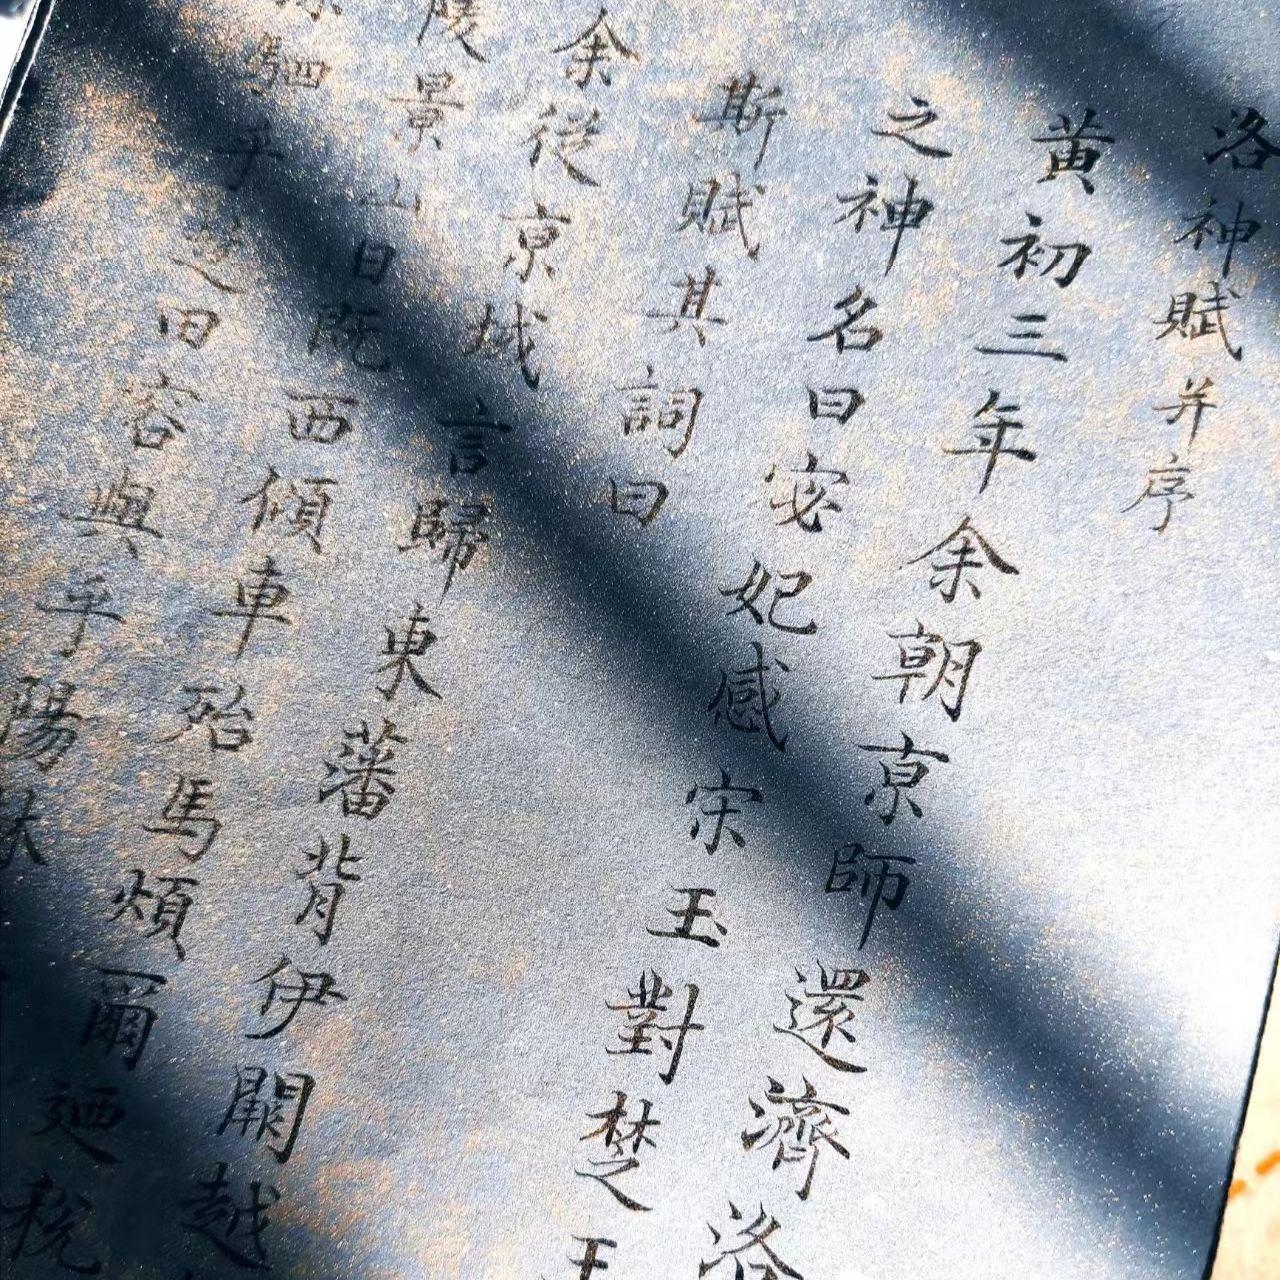 洛神賦并序
黄初三年余朝亰師還濟洛
之神名曰宓妃感宋玉對楚王
斯賦其詞曰
余從亰域言歸東藩背伊闕越
陵景山日既西傾車殆馬煩爾迺税
駟乎芝田容與乎陽林